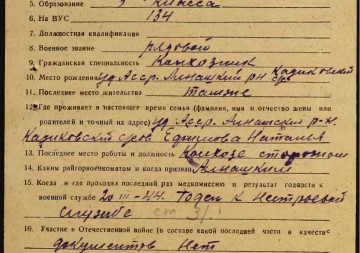 5. Образование 3 класса
6. На ВУС 134
7. Должностная квалификация
8. Военное звание рядовой
9. Гражданская специальность Колхозник
10. Место рождения Уд Асср. Алнашский р-н Кадиковский с/с
11. Последнее место жительства там же
12. Где проживает в настоящее время семья (фамилия, имя и отчество жены или
родителей и точный их адрес) Уд Асср. Алнашский р-н.
Кадиковский с/сов Ефимова Наталья
13. Последнее место работы и должность Колхозе сторожом
14. Каким райгорвоенкоматом и когда призван Алнашским
15. Когда и где проходил последний раз медкомиссию и результат годности к
военной службе 20 III-44. Годен к нестроевой
службе ст 31
16. Участие в Отечественной войне (в составе какой последней части и в качестве
документов нет